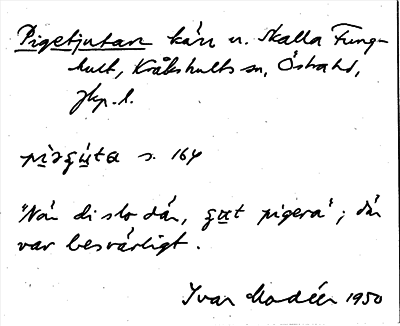 Pigetjutan kärr n. Skalla Fung-
hult, Kråkshults sn, Östra hd,
Jkp. l.
s. 164
"När di slo där, gæt pigera"; där
var besvärligt.
Ivar Modéer 1950